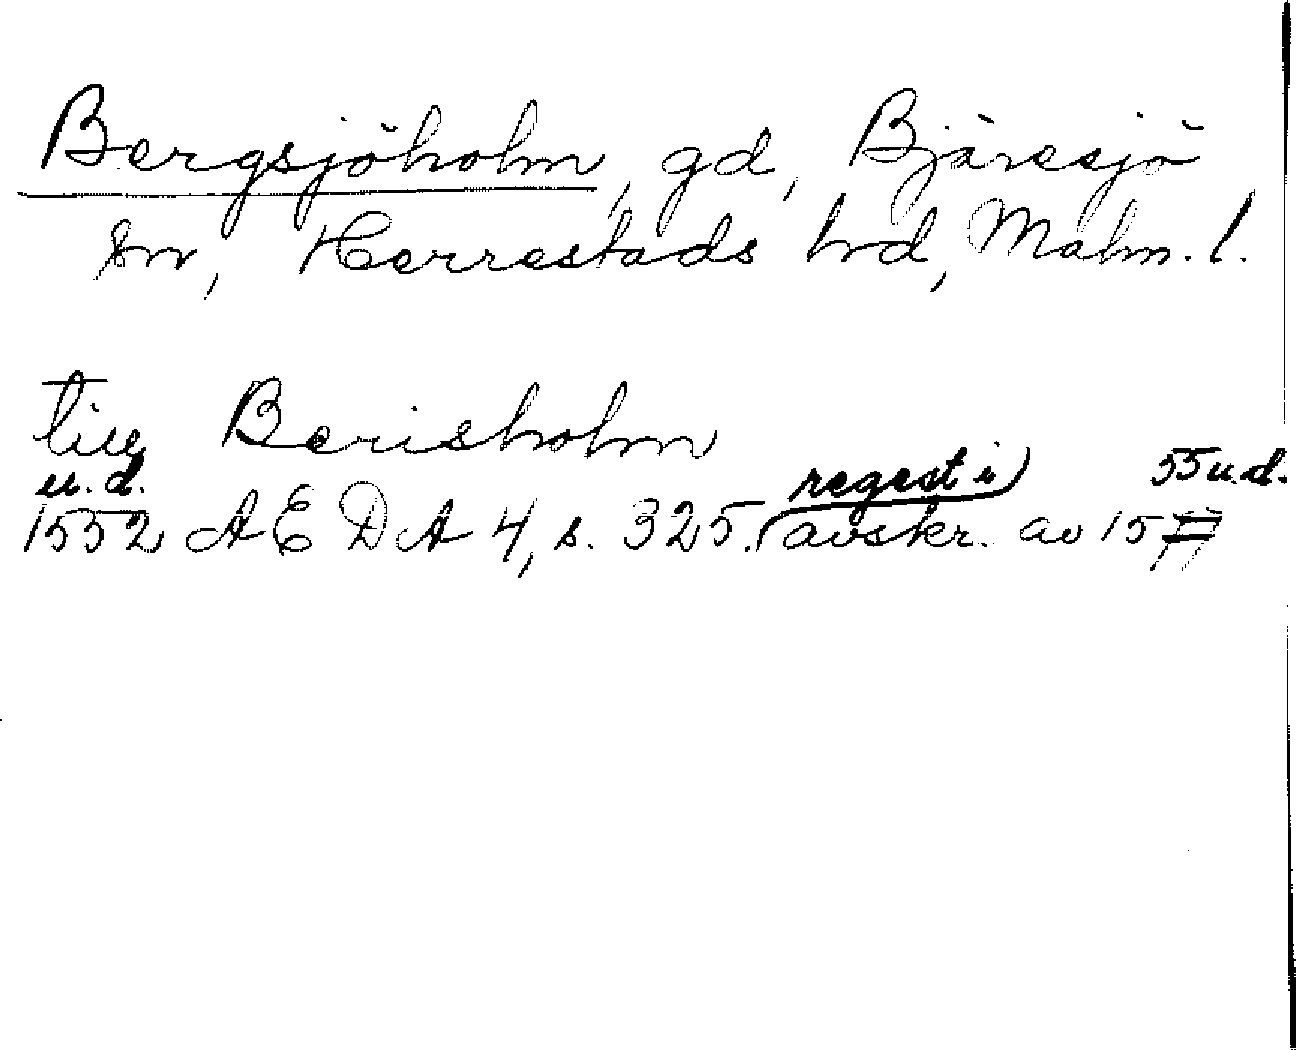 Bergsjöholm, gd, Bjäresjö
sn, Herrestads hd, Malm. l.
till Berisholm
u.d. regest i 55 u.d.
1552 AEDA 4, s. 325. avskr. av 15